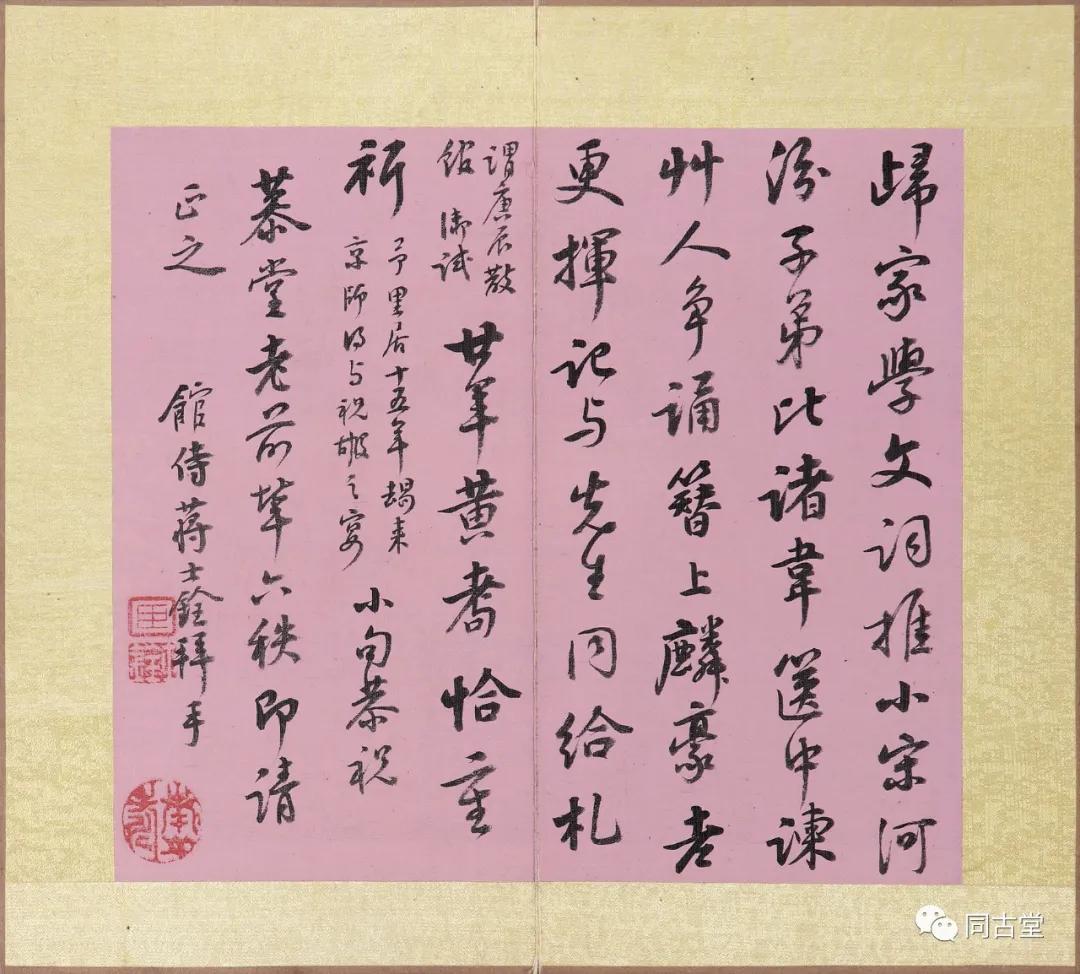 歸家學文詞推小宋河
汾子弟比諸韋篋中諫
艸人争誦簪上麟豪老
更揮記与先生同給札
謂庚辰散
館 御試
廿年黄耇恰重
祈
予里居十五年朅来
京師得与祝嘏之宴
小句恭祝
慕堂老前辈六秩即請
正之
館侍蔣士銓拜手
同古堂